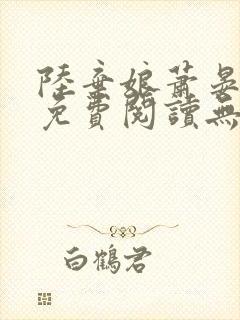 陸棄娘蕭晏
免費閱讀無
白鶴君